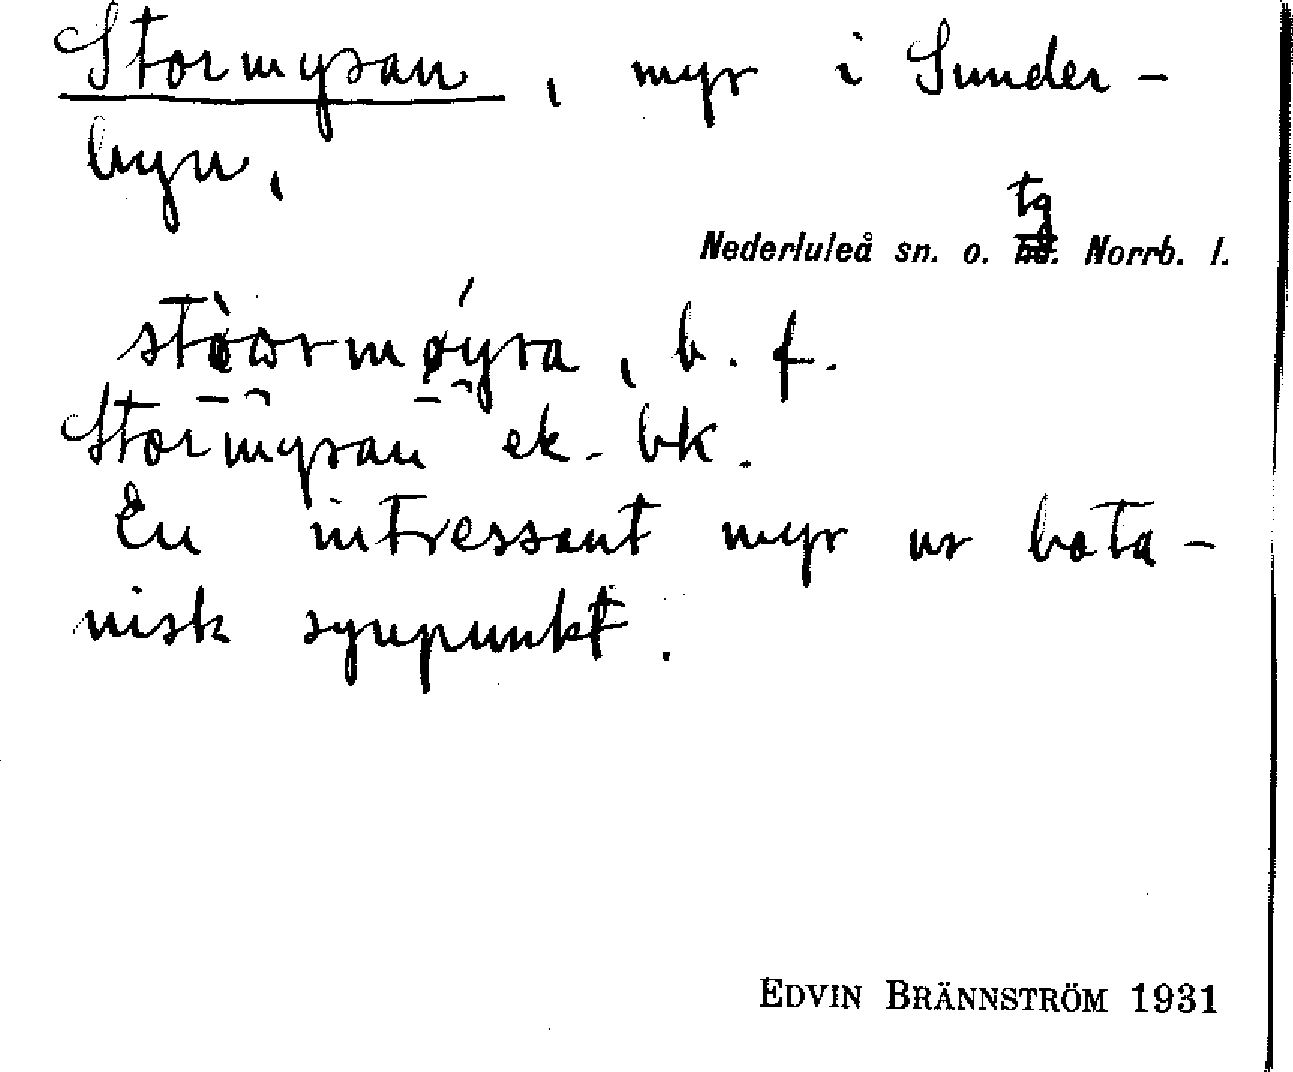 Stormyran, myr i Sunder-
byn,
tg
Nederluleå sn. o. hd. Norrb. l.
stòωrmøýra, b. f.
Stormyran ek. bk.
En intressant myr ur bota-
nisk synpunkt.
EDVIN BRÄNNSTRÖM 1931